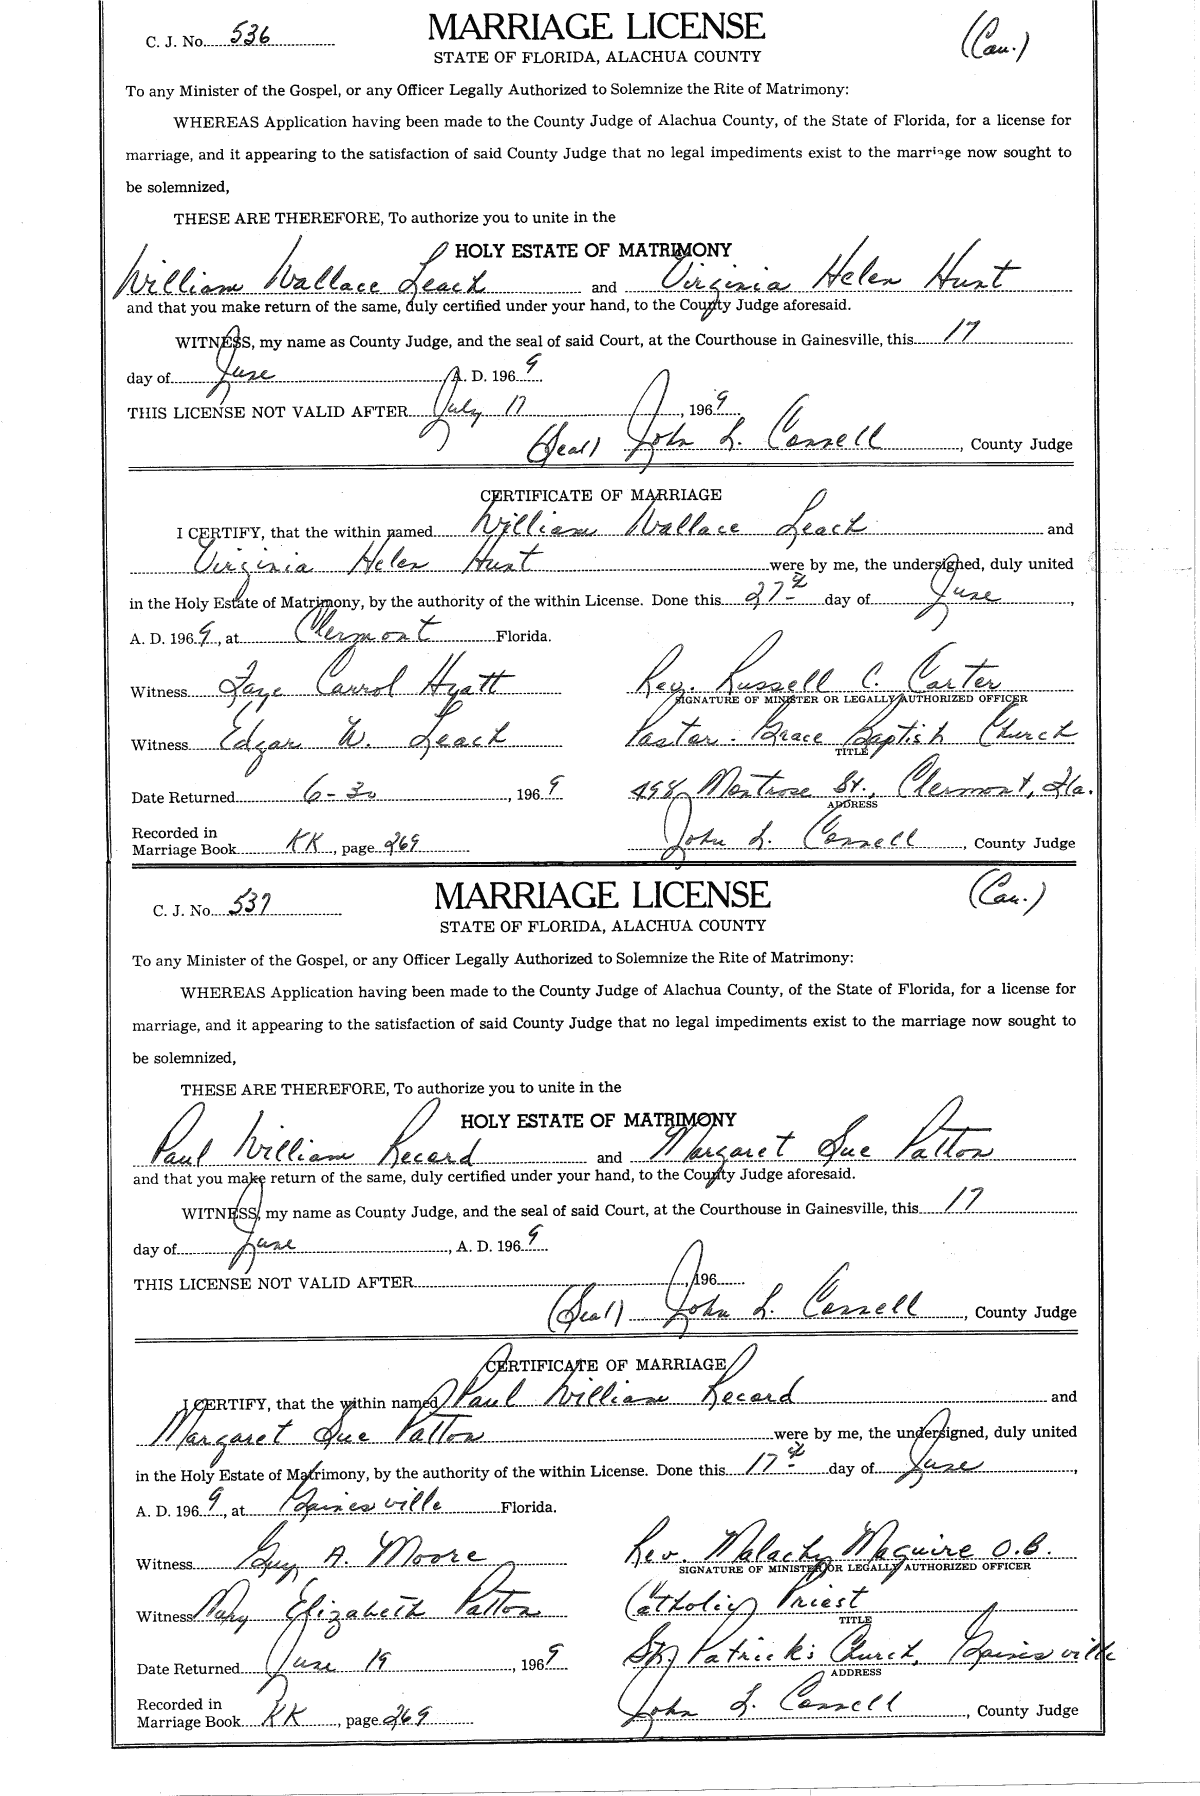 C. J. No. 536
MARRIAGE LICENSE
(Cau.)
STATE OF FLORIDA, ALACHUA COUNTY
To any Minister of the Gospel, or any Officer Legally Authorized to Solemnize the Rite of Matrimony:
WHEREAS Application having been made to the County Judge of Alachua County, of the State of Florida, for a license for
marriage, and it appearing to the satisfaction of said County Judge that no legal impediments exist to the marriage now sought to
be solemnized,
THESE ARE THEREFORE, To authorize you to unite in the
HOLY ESTATE OF MATRIMONY
William Wallace Leach and Virginia Helen Hunt
and that you make return of the same, duly certified under your hand, to the County Judge aforesaid.
WITNESS, my name as County Judge, and the seal of said Court, at the Courthouse in Gainesville, this 17
day of June A. D. 1969
THIS LICENSE NOT VALID AFTER July 17, 1969
(Seal) John L. Connell, County Judge
CERTIFICATE OF MARRIAGE
I CERTIFY, that the within named William Wallace Leach and
Virginia Helen Hunt were by me, the undersigned, duly united
in the Holy Estate of Matrimony, by the authority of the within License. Done this 27th day of June,
A. D. 1969, at Clermont Florida.
Witness Faye Carrol Hyatt Rev. Russell C. Carter
SIGNATURE OF MINISTER OR LEGALLY AUTHORIZED OFFICER
Witness Edgar W. Leach Pastor - Grace Baptish Church
TITLE
Date Returned 6-30, 1969 498 Montrose St., Clermont, Fla.
ADDRESS
Recorded in
Marriage Book KK, page 269 John L. Connell, County Judge
C. J. No. 537
MARRIAGE LICENSE
(Cau.)
STATE OF FLORIDA, ALACHUA COUNTY
To any Minister of the Gospel, or any Officer Legally Authorized to Solemnize the Rite of Matrimony:
WHEREAS Application having been made to the County Judge of Alachua County, of the State of Florida, for a license for
marriage, and it appearing to the satisfaction of said County Judge that no legal impediments exist to the marriage now sought to
be solemnized,
THESE ARE THEREFORE, To authorize you to unite in the
HOLY ESTATE OF MATRIMONY
Paul William Record and Margaret Sue Patton
and that you make return of the same, duly certified under your hand, to the County Judge aforesaid.
WITNESS, my name as County Judge, and the seal of said Court, at the Courthouse in Gainesville, this 17
day of June, A. D. 1969
THIS LICENSE NOT VALID AFTER , 196
(Seal) John L. Connell, County Judge
CERTIFICATE OF MARRIAGE
I CERTIFY, that the within named Paul William Record and
Margaret Sue Patton were by me, the undersigned, duly united
in the Holy Estate of Matrimony, by the authority of the within License. Done this 17th day of June,
A. D. 1969, at Gainesville Florida.
Witness Guy A. Moore Rev. Malachy Maguire O.B.
SIGNATURE OF MINISTER OR LEGALLY AUTHORIZED OFFICER
Witness Mary Elizabeth Patton Catholic Priest
TITLE
Date Returned June 19, 1969 St. Patrick's Church, Gainesville
ADDRESS
Recorded in
Marriage Book KK, page 269 John L. Connell, County Judge